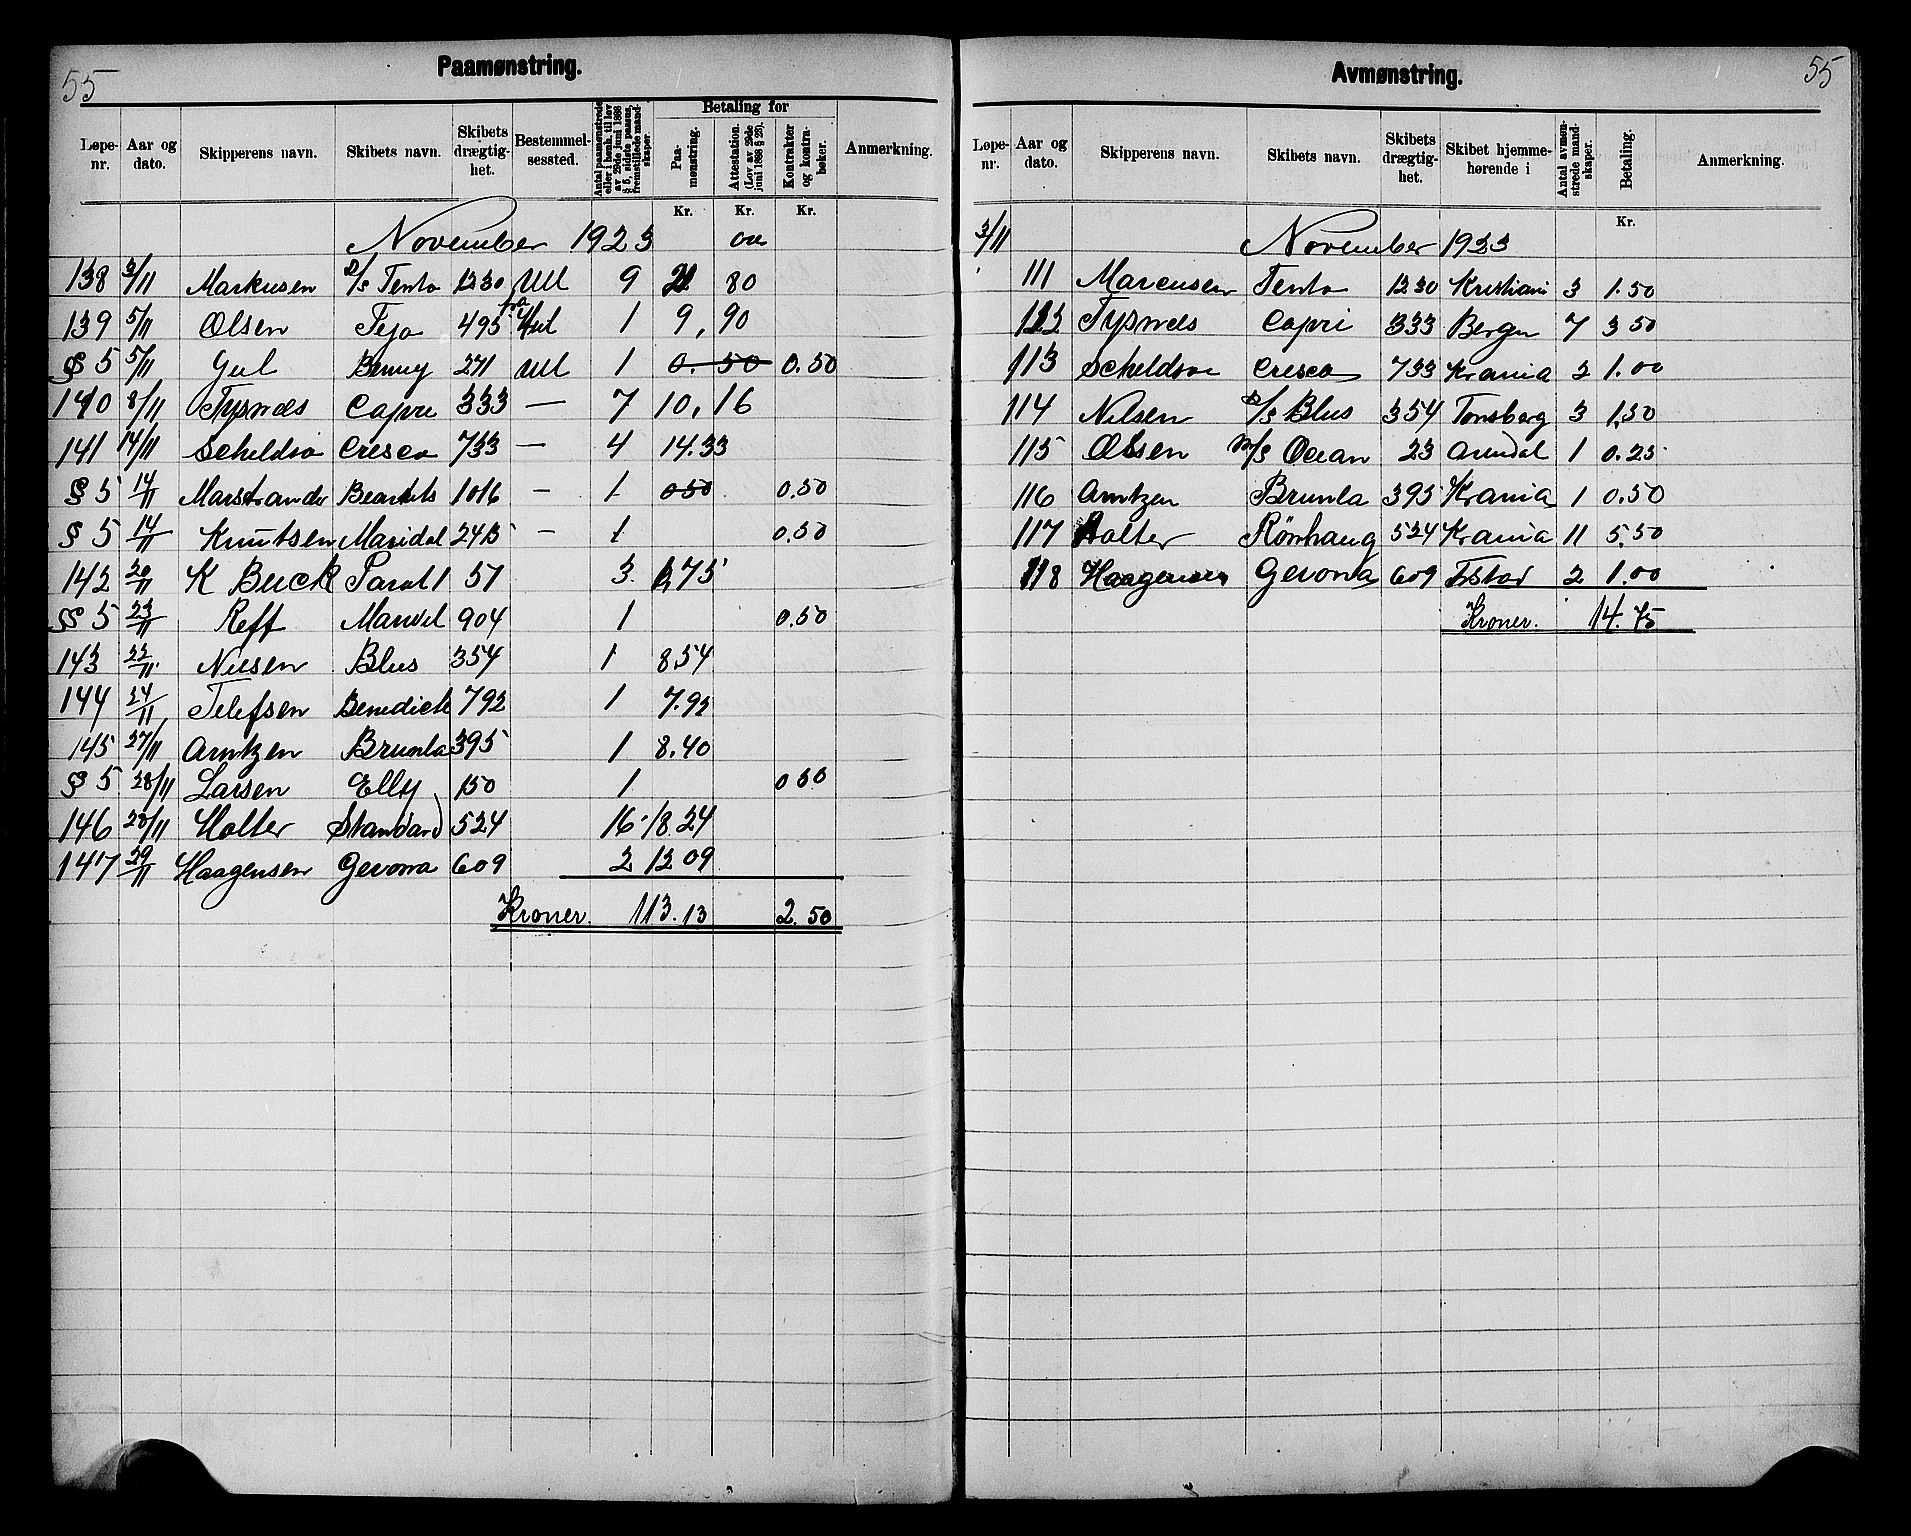 55
Paamønstring.
Løpe-nr. Aar og dato. Skipperens navn. Skibets navn. Skibets drægtig-het. Bestemmel-sessted. Antal paamønstrede eller i henh. til lov av 29de juni 1888 § 5, sidste passus, fremstillede mandskaper. Betaling for Paa-mønstring. Attestation. (Lov av 29de juni 1888 § 23). Kontrakter og kontra-bøker. Anmerkning.
Kr. Kr. Kr.
November 1923
138 3/11 Markusen D/S Tento 1230 Utl 9 21 80
139 5/11 Olsen Tejo 495 1 9,90
§ 5 5/11 Gul Benny 271 Utl 1 0.50 0.50
140 8/11 Tysnes Capri 333 — 7 10,16
141 14/11 Scheldsø Cresco 733 — 4 14.33
§ 5 14/11 Marstrander 1016 — 1 0.50 0.50
§ 5 14/11 Knutsen Maridal 2415 — 1 0.50
142 20/11 K Buck Parat 1 57 3 2,75
§ 5 23/11 Reff Marvel 904 1 0.50
143 22/11 Nilsen Blus 354 1 8.54
144 24/11 Telefsen Benedicte 792 1 7.92
145 27/11 Arntzen Brunla 395 1 8.40
§ 5 28/11 Larsen Elly 150 1 0.50
146 28/11 Holter Standard 524 16 18.24
147 29/11 Haagensen Gevona 609 2 12 09
Kroner. 113.13 2.50
55
Avmønstring.
Løpe-nr. Aar og dato. Skipperens navn. Skibets navn. Skibets drægtig-het. Skibet hjemme-hørende i Antal avmøn-strede mand-skaper. Betaling. Anmerkning.
Kr.
3/11 November 1923
111 Marcusen Tento 1230 Kristiani 3 1.50
112 Tysnes Capri 333 Bergen 7 3 50
113 Scheldsøe Cresco 733 Krania 2 1.00
114 Nilsen D/S Blus 354 Tønsberg 3 1.50
115 Olsen M/S Ocean 23 Arendal 1 0.25
116 Arntzen Brunla 395 Krania 1 0.50
117 Holter Rønhaug 524 Krania 11 5.50
118 Haagensen Gevona 609 2 1.00
Kroner. 14.75